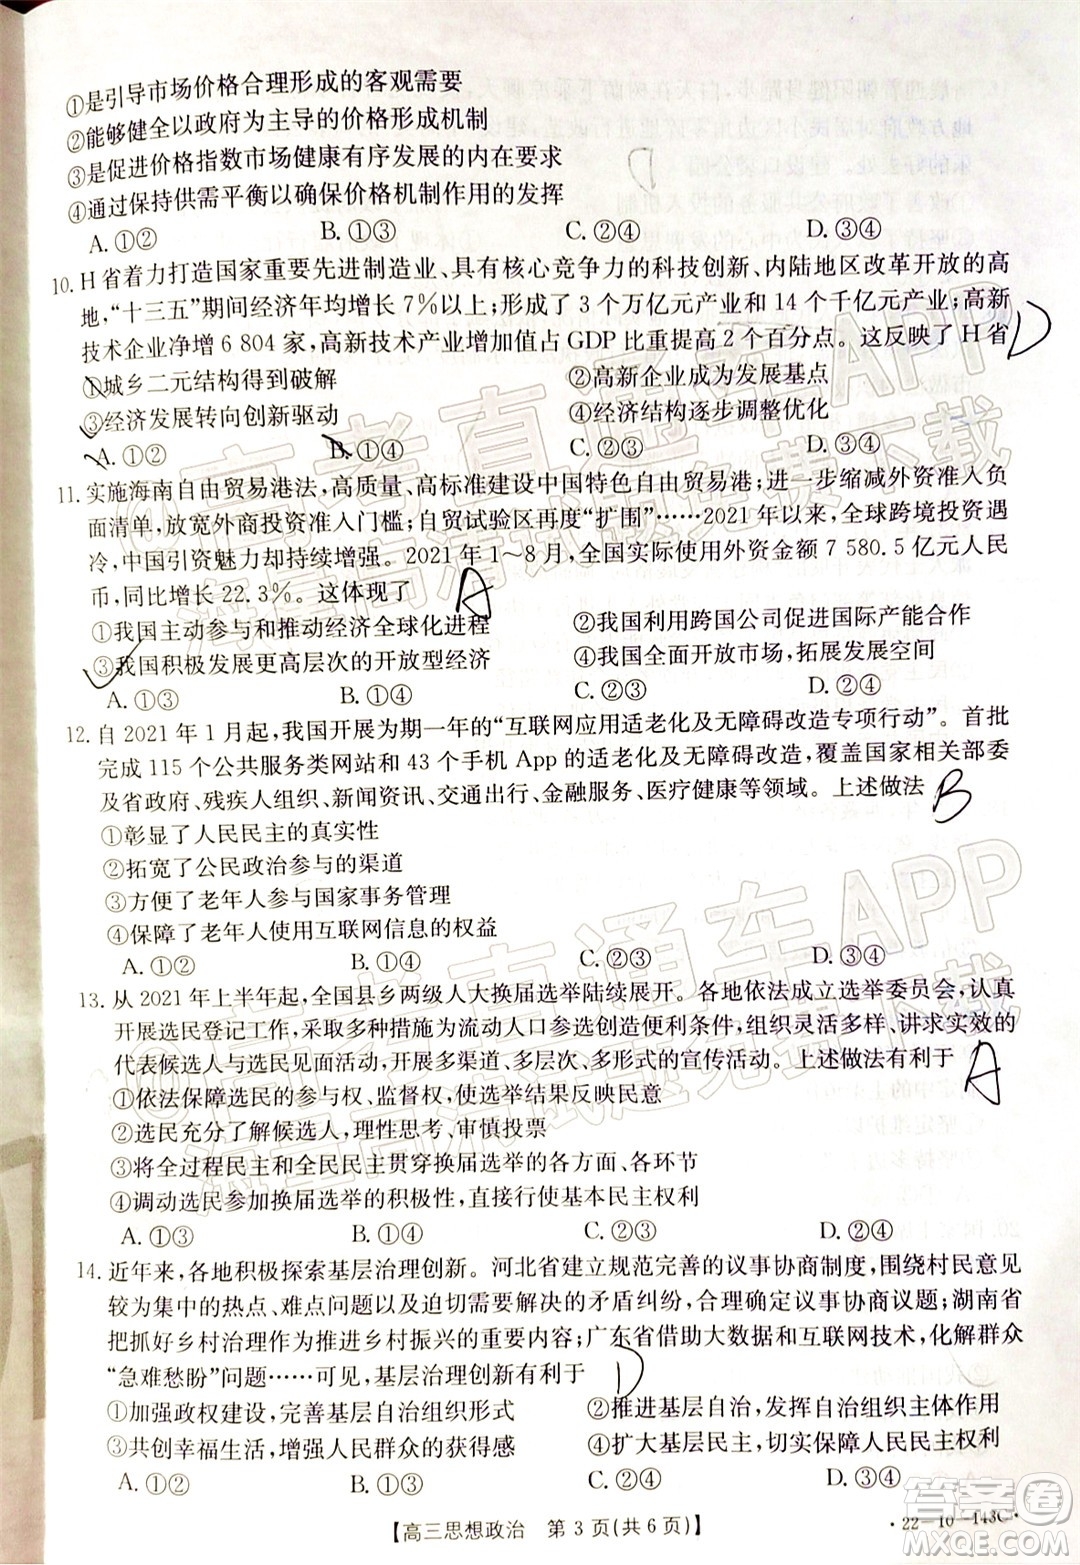 ①是引导市场价格合理形成的客观需要
②能够健全以政府为主导的价格形成机制
③是促进价格指数市场健康有序发展的内在要求
④通过保持供需平衡以确保价格机制作用的发挥
D
A. ①② B. ①③ C. ②④ D. ③④
10. H省着力打造国家重要先进制造业、具有核心竞争力的科技创新、内陆地区改革开放的高
地,“十三五”期间经济年均增长7%以上;形成了3个万亿元产业和14个千亿元产业;高新
技术企业净增6 804家,高新技术产业增加值占GDP比重提高2个百分点。这反映了H省 D
①城乡二元结构得到破解 ②高新企业成为发展基点
③经济发展转向创新驱动 ④经济结构逐步调整优化
A. ①② B. ①④ C. ②③ D. ③④
11. 实施海南自由贸易港法,高质量、高标准建设中国特色自由贸易港;进一步缩减外资准入负
面清单,放宽外商投资准入门槛;自贸试验区再度“扩围”……2021年以来,全球跨境投资遇
冷,中国引资魅力却持续增强。2021年1~8月,全国实际使用外资金额7 580.5亿元人民
币,同比增长22.3%。这体现了 A
①我国主动参与和推动经济全球化进程 ②我国利用跨国公司促进国际产能合作
③我国积极发展更高层次的开放型经济 ④我国全面开放市场,拓展发展空间
A. ①③ B. ①④ C. ②③ D. ②④
12. 自2021年1月起,我国开展为期一年的“互联网应用适老化及无障碍改造专项行动”。首批
完成115个公共服务类网站和43个手机App的适老化及无障碍改造,覆盖国家相关部委
及省政府、残疾人组织、新闻资讯、交通出行、金融服务、医疗健康等领域。上述做法 B
①彰显了人民民主的真实性
②拓宽了公民政治参与的渠道
③方便了老年人参与国家事务管理
④保障了老年人使用互联网信息的权益
A. ①② B. ①④ C. ②③ D. ③④
13. 从2021年上半年起,全国县乡两级人大换届选举陆续展开。各地依法成立选举委员会,认真
开展选民登记工作,采取多种措施为流动人口参选创造便利条件,组织灵活多样、讲求实效的
代表候选人与选民见面活动,开展多渠道、多层次、多形式的宣传活动。上述做法有利于 A
①依法保障选民的参选权、监督权,使选举结果反映民意
②选民充分了解候选人,理性思考、审慎投票
③将全过程民主和人民民主贯穿换届选举的各方面、各环节
④调动选民参加换届选举的积极性,直接行使基本民主权利
A. ①③ B. ①④ C. ②③ D. ②④
14. 近年来,各地积极探索基层治理创新。河北省建立规范完善的议事协商制度,围绕村民意见
较为集中的热点、难点问题以及迫切需要解决的矛盾纠纷,合理确定议事协商议题;湖南省
把抓好乡村治理作为推进乡村振兴的重要内容;广东省借助大数据和互联网技术,化解群众
“急难愁盼”问题……可见,基层治理创新有利于 D
①加强政权建设,完善基层自治组织形式 ②推进基层自治,发挥自治组织主体作用
③共创幸福生活,增强人民群众的获得感 ④扩大基层民主,切实保障人民民主权利
A. ①② B. ①③ C. ②④ D. ③④
【高三思想政治 第3页(共6页)】 ·22-10-143C·
高考直通车APP
海量高清试题免费下载
高考直通车APP
海量高清试题免费下载
答案圈
MXQE.COM